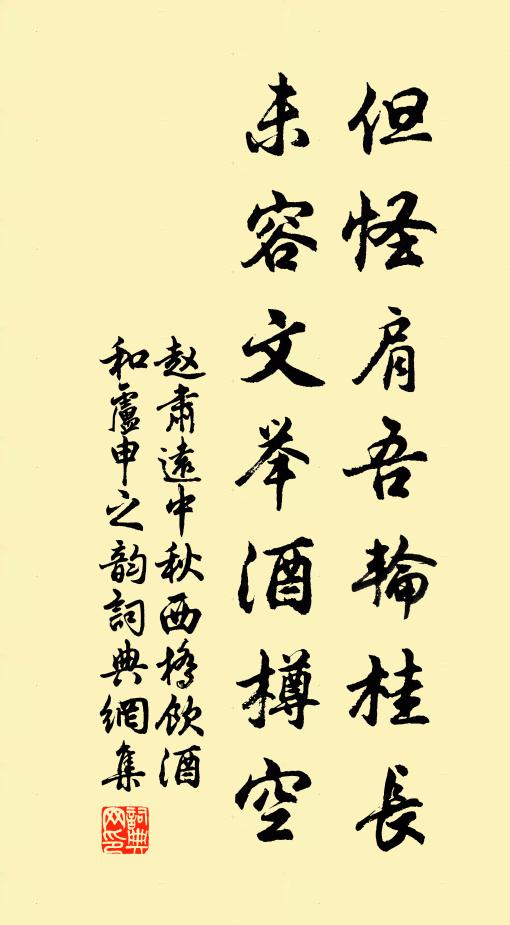 但怪肩吾輪桂長
未容文举酒樽空
赵肅遠中秋西橋饮酒
和盧申之韵詞典網集
詞典
网印